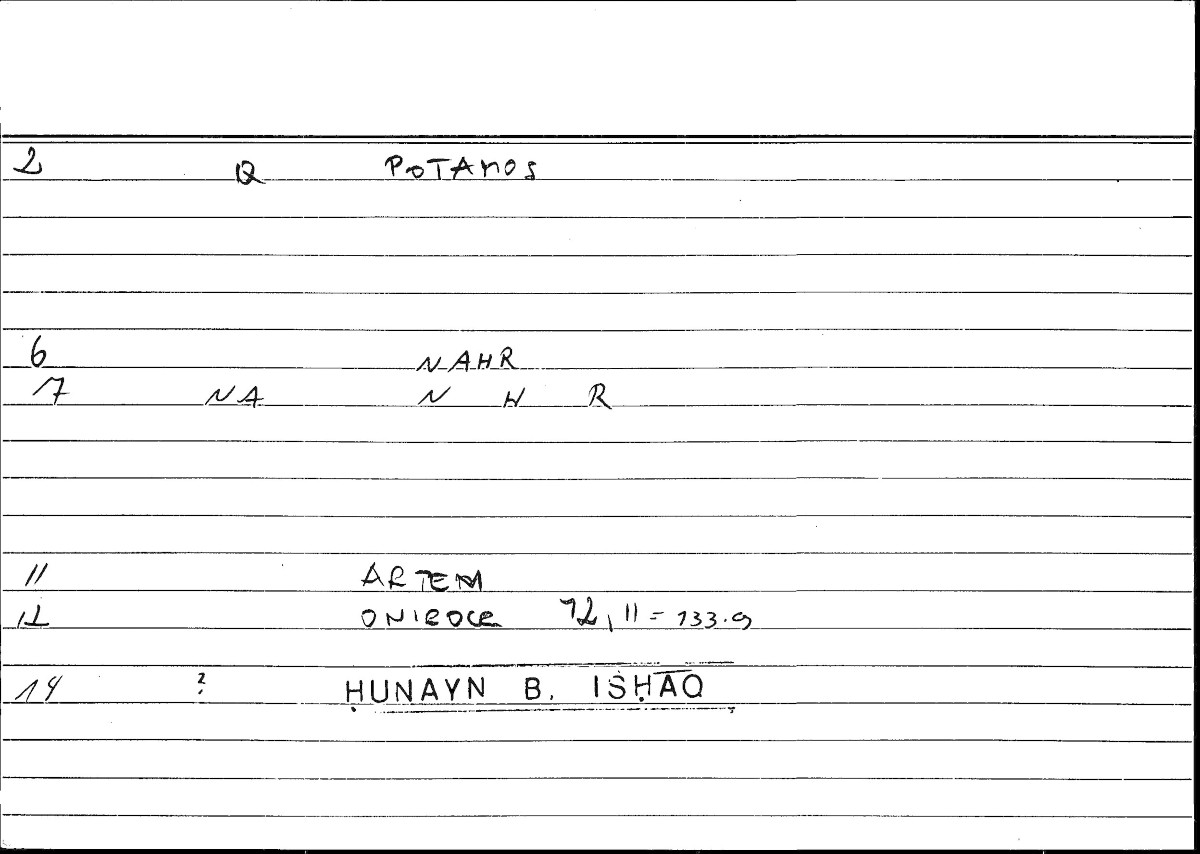 2 Q POTAMOS
6 NAHR
7 NA N H R
11 ARTEM
12 ONIROCR 72, 11 = 133.9
14 ? ḤUNAYN B. ISḤĀQ